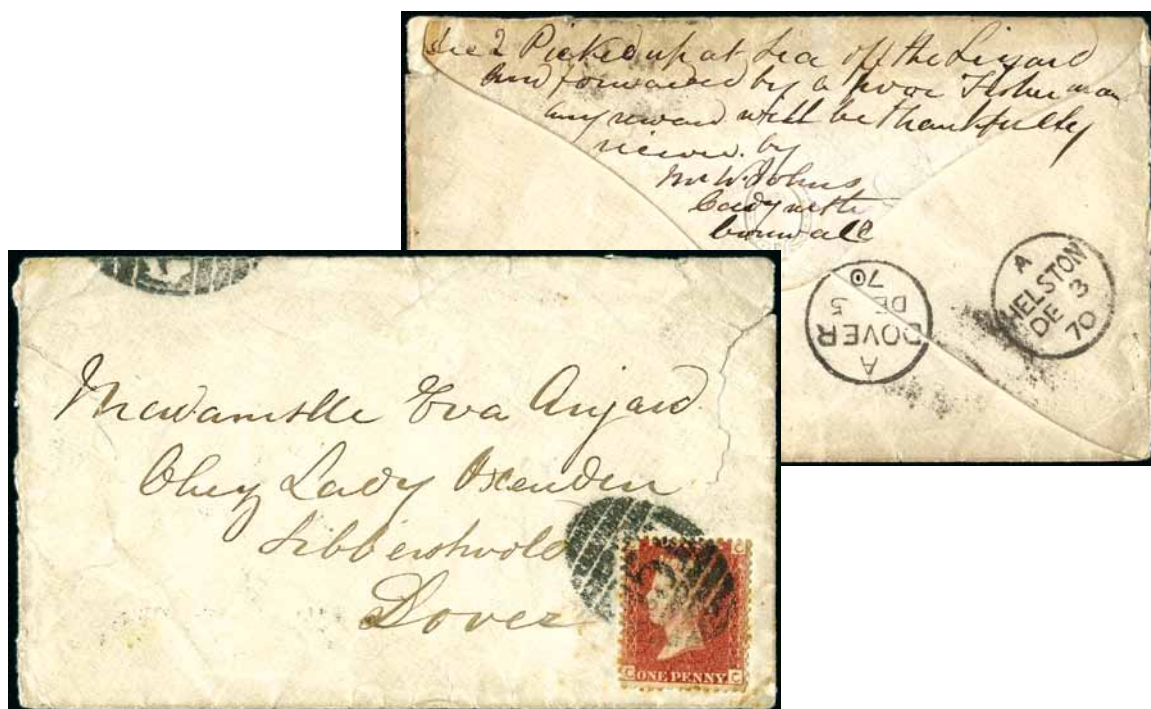 Dec 2 Picked up at Sea off the Lizard
and forwarded by a poor Fisherman
any reward will be thankfully
by
Mr W. Johns
Cadgwith
Cornwall
A
DOVER
DE 5
70
A
HELSTON
DE 3
70
Eva Anjard
Chez Lady Oxenden
Sibbertswold
Dover
C C
C ONE PENNY C